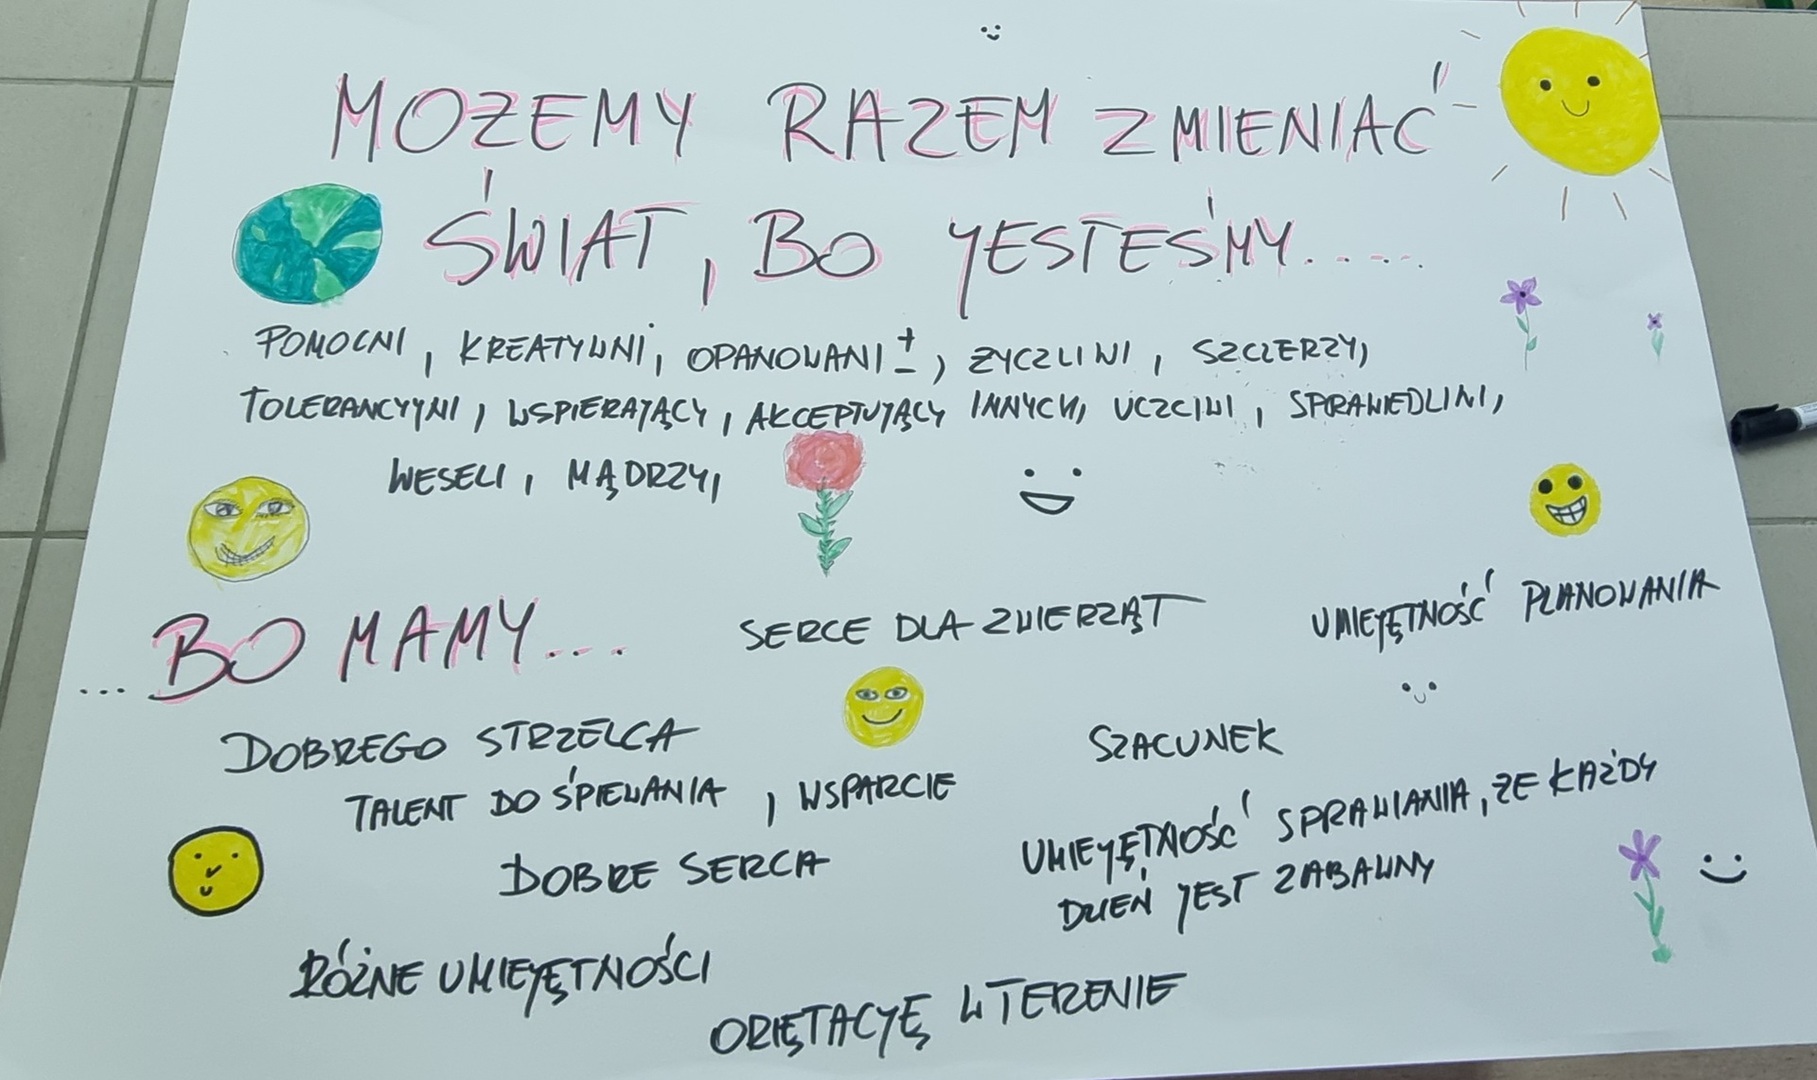 MOŻEMY RAZEM ZMIENIAĆ
ŚWIAT, BO JESTEŚMY.....
POMOCNI, KREATYWNI, OPANOWANI ±, ŻYCZLIWI, SZCZERZY,
TOLERANCYJNI, WSPIERAJĄCY, AKCEPTUJĄCY INNYCH, UCZCIWI, SPRAWIEDLIWI,
WESELI, MĄDRZY,
...BO MAMY...
SERCE DLA ZWIERZĄT
UMIEJĘTNOŚĆ PLANOWANIA
DOBREGO STRZELCA
SZACUNEK
TALENT DO ŚPIEWANIA, WSPARCIE
UMIEJĘTNOŚĆ SPRAWIANIA, ŻE KAŻDY
DZIEŃ JEST ZABAWNY
DOBRE SERCA
RÓŻNE UMIEJĘTNOŚCI
ORIĘTACJĘ W TERENIE